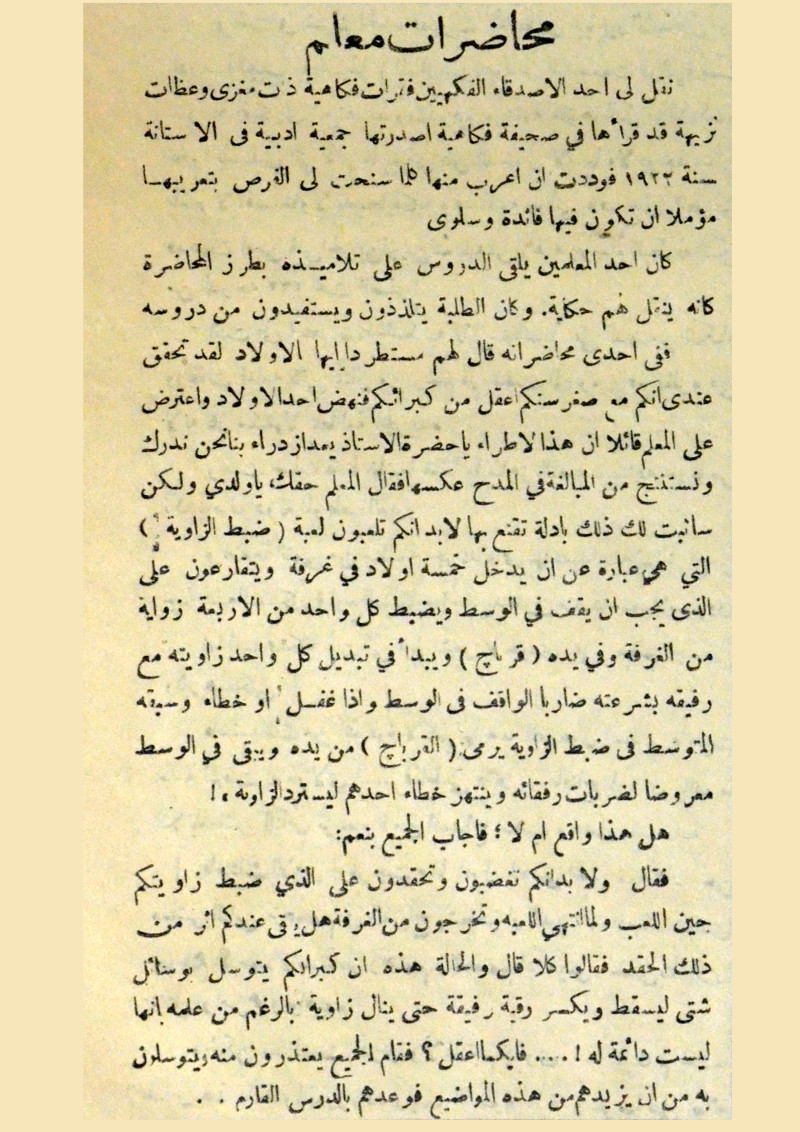 محاضرات معلم
نقل لى احد الاصدقاء الفكهيين فترات فكاهية ذت مغزى وعظات
نزيهة قد قرأها في صحيفة فكاهية اصدرتها جمعية ادبية فى الاستانة
سنة ١٩٢٢ فوددت ان اعرب منها كلما سنحت لى الفرص بتعريبها
مؤملا ان تكون فيها فائدة وسلوى
كان احد المعلمين يلقى الدروس على تلاميذه بطرز المحاضرة
كانه ينقل لهم حكاية. وكان الطلبة يتلذذون ويستفيدون من دروسه
ففى احدى محاضراته قال لهم مستطردا ايها الاولاد لقد تحقق
عندى انكم مع صغر سنكم اعقل من كبرائكم فنهض احد الاولاد واعترض
على المعلم قائلا ان هذا لاطراء ياحضرة الاستاذ يعد ازدراء بنا نحن ندرك
ونستنتج من المبالغة في المدح عكسها فقال المعلم حقك ياولدي ولكن
ساثبت لك ذلك بادلة تقنع بها لابد انكم تلعبون لعبة ( ضبط الزاوية )
التي هي عبارة عن ان يدخل خمسة اولاد في غرفة ويتقارعون على
الذى يجب ان يقف في الوسط ويضبط كل واحد من الاربعة زواية
من الغرفة وفي يده ( قرباچ ) ويبدأ في تبديل كل واحد زاويته مع
رفيقه بسرعته ضاربا الواقف فى الوسط واذا غفل او خطاء وسبقه
المتوسط فى ضبط الزاوية يرمى ( القرباچ ) من يده ويبقى في الوسط
معروضا لضربات رفقائه وينتهز خطاء احدهم ليسترد الزاوية ،!
هل هذا واقع ام لا ؛ فاجاب الجميع بنعم:
فقال ولا بد انكم تغضبون وتحقدون على الذي ضبط زاويتكم
حين اللعب ولما انتهى اللعبه وتخرجون من الغرفة هل يبقى عندكم اثر من
ذلك الحقد فقالوا كلا قال والحالة هذه ان كبرائكم يتوسل بوسائل
شتى ليسقط ويكسر رقبة رفيقة حتى ينال زاوية بالرغم من علمه بانها
ليست دائمة له !.... فايكما اعقل ؟ فقام الجميع يعتذرون منه ويتوسلون
به من ان يزيدهم من هذه المواضيع فوعدهم بالدرس القادم . .